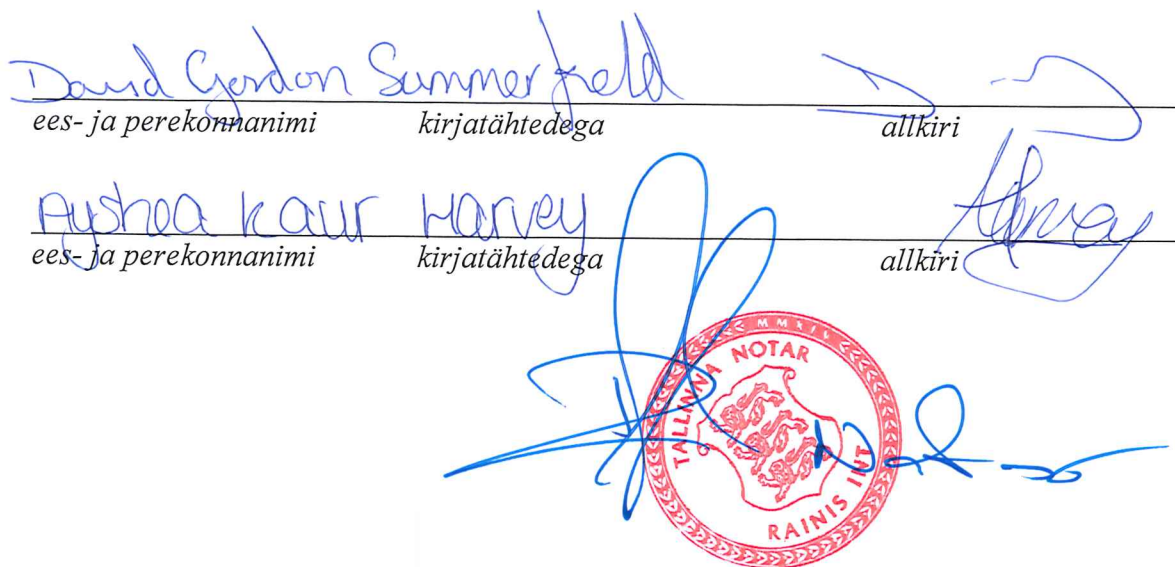 David Gordon Summerfield
ees- ja perekonnanimi kirjatähtedega allkiri
Ayshea Kaur Harvey AHarvey
ees- ja perekonnanimi kirjatähtedega allkiri
TALLINNA NOTAR
RAINIS INT